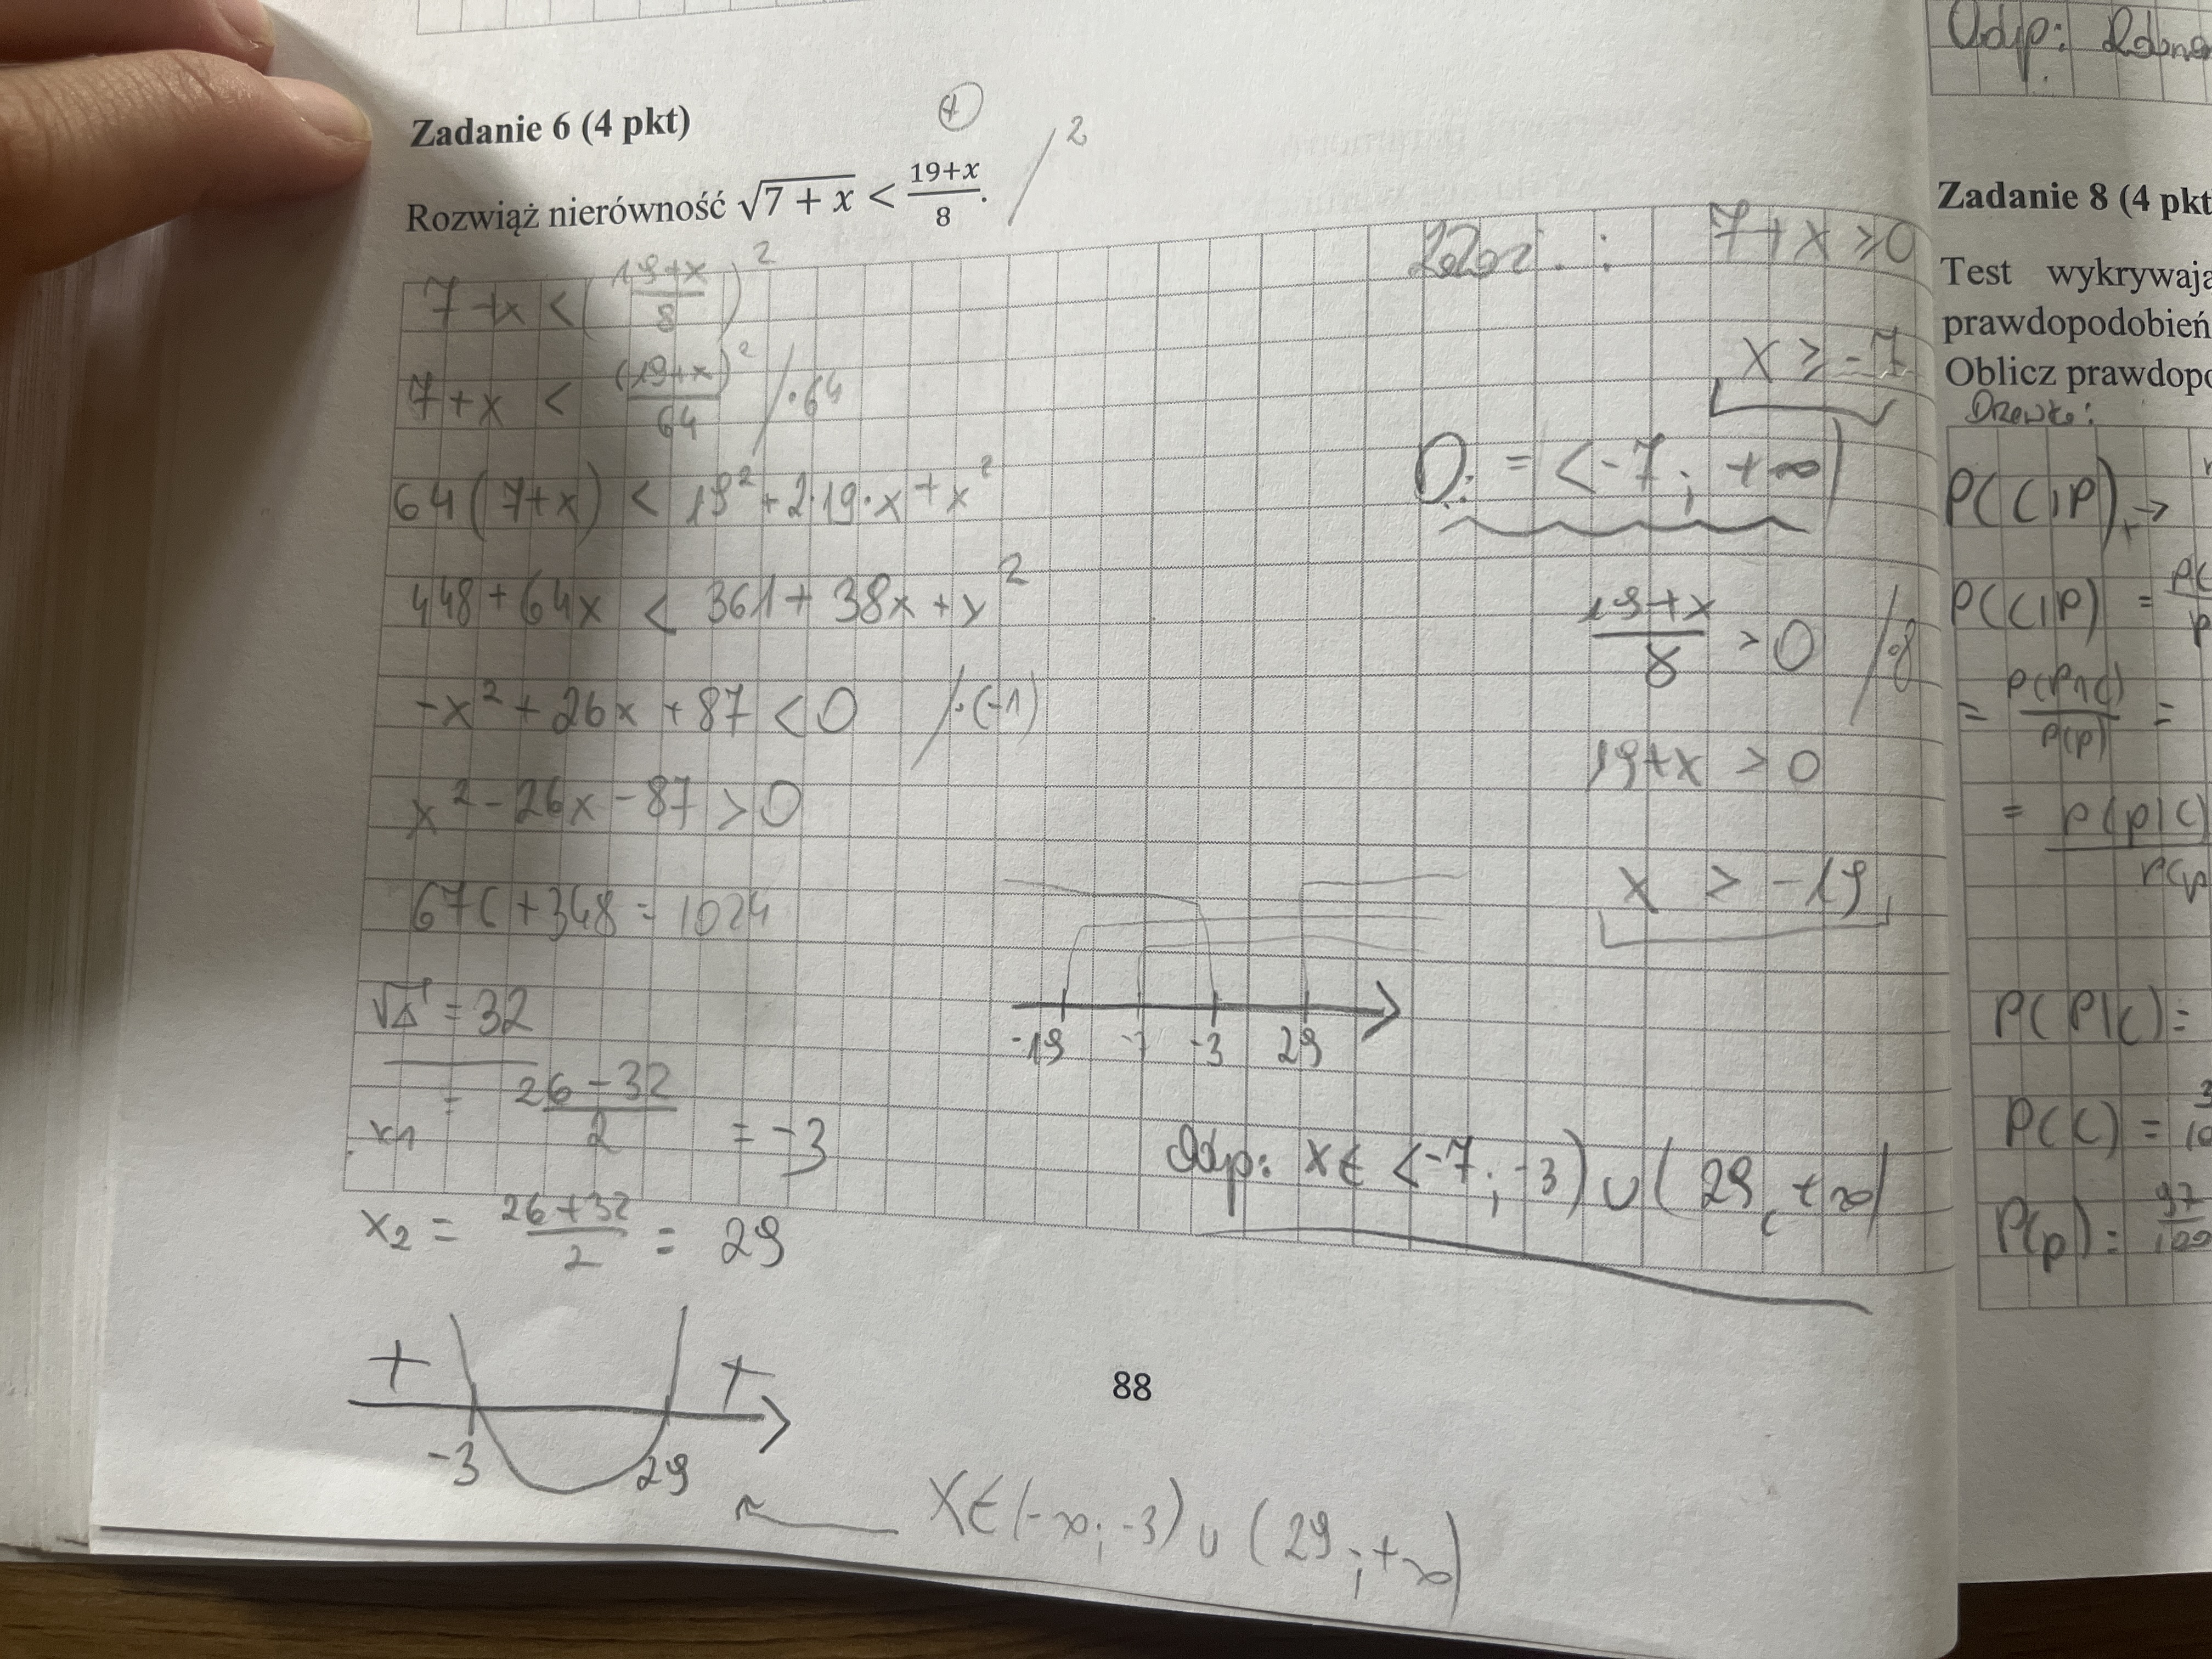 Zadanie 6 (4 pkt)
Rozwiąż nierówność √7 + x < (19+x)/8. /²
7+x < ((19+x)/8)²
7+x < (19+x)²/64 /·64
64(7+x) < 19²+2·19·x+x²
448+64x < 361+38x+x²
-x²+26x+87<0 /·(-1)
x²-26x-87>0
676+348=1024
√Δ = 32
x1 = (26-32)/2 = -3
x2 = (26+32)/2 = 29
+ +
-3 29
x∈(-∞;-3)∪(29;+∞)
: 7+x ≥0
x ≥ -7
D: = <-7; +∞)
(19+x)/8 > 0 /·8
19+x > 0
x > -19
-19 -7 -3 29
Odp: x∈ <-7;-3)∪(29;+∞)
88
Odp:
Zadanie 8 (4 pkt
Test wykrywają
prawdopodobień
Oblicz prawdopo
Drzewko:
P(C|P) →
P(C|P) =
= P(P∩C)/P(P) =
= P(P|C)
P(P|C)=
P(C) =
P(P)= 97/100